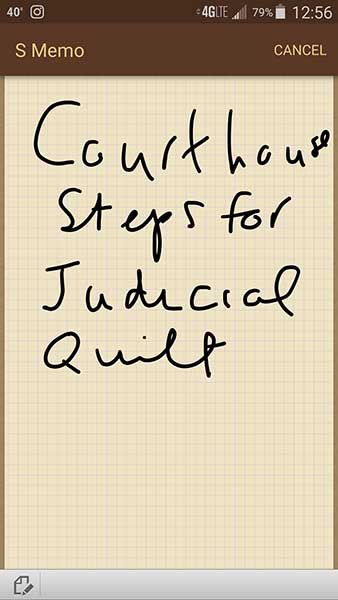 40° 4G LTE 79% 12:56
S Memo CANCEL
Courthouse
Steps for
Judicial
Quilt